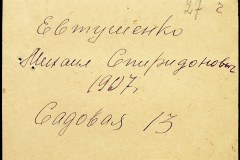 27 г
Евтушенко
Михаил Спиридонович
1907,
Садовая 13